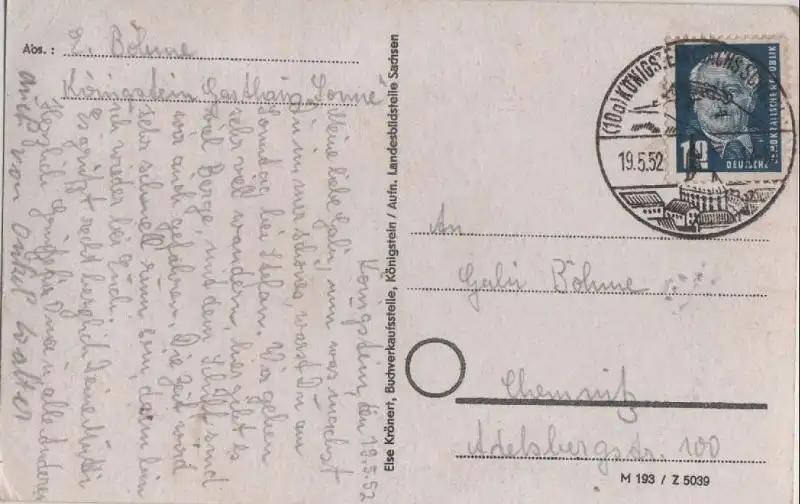 Abs.: L. Böhme
Königstein Gasthaus Sonne
Königstein, den 19.5.52
Meine liebe Gabi, nun was machst
Du immer schönes, warst Du am
Sonntag bei Stefan. Wir gehen
sehr viel wandern, hier gibt es
viel Berge, mit dem Schiff sind
wir auch gefahren. Die Zeit wird
sehr schnell rum sein, dann bin
ich wieder bei Euch.
Es grüßt recht herzlich Deine Mutti
Herzliche Grüße für Oma u. alle anderen
auch von Onkel Walter
Else Krönert, Buchverkaufsstelle, Königstein / Aufn. Landesbildstelle Sachsen
(10a) KÖNIGSTEIN
19.5.52
12
DEUTSCHE
DEMOKRATISCHE REPUBLIK
An
Gabi Böhme
Chemnitz
Adelsbergstr. 100
M 193 / Z 5039